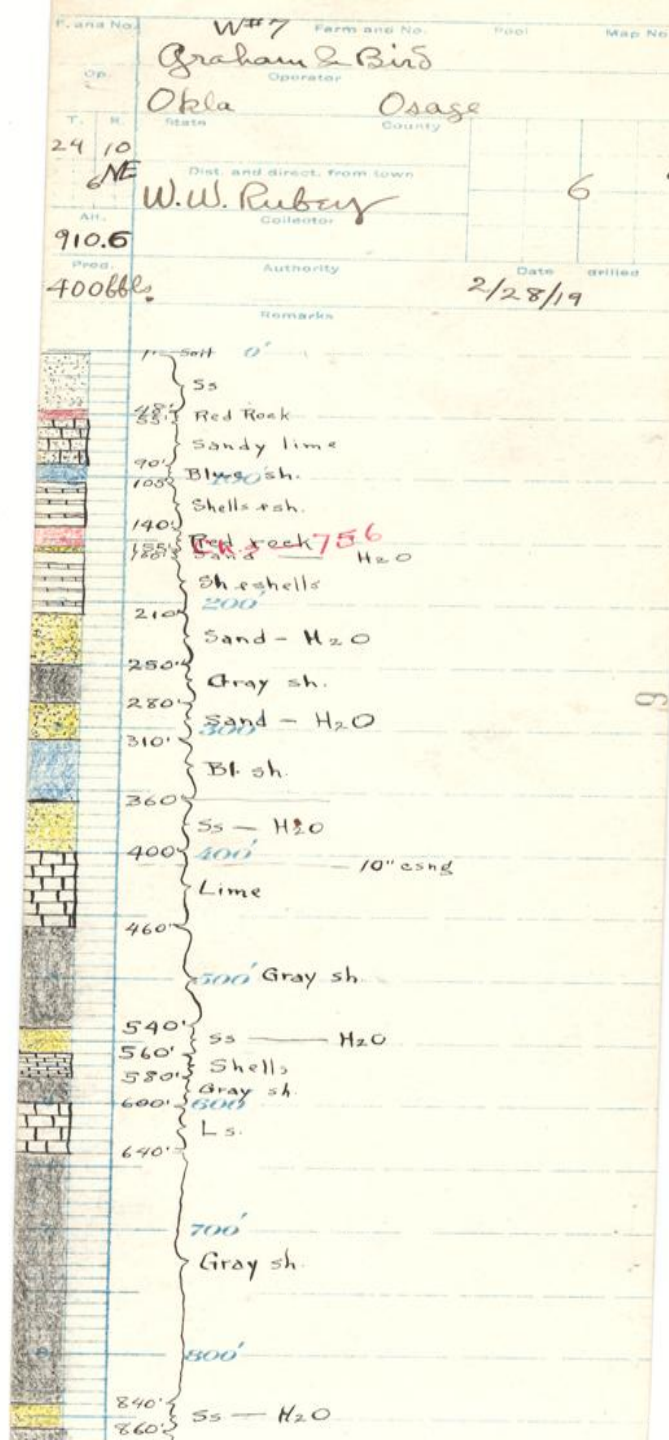 F. and No. W#7 Farm and No. Pool Map No
Graham & Bird
Op. Operator
Okla Osage
T. R. State County
24 10
6 NE Dist. and direct. from town 6
W.W. Rubey
Alt. Collector
910.6
Prod. Authority Date drilled
400 bbls. 2/28/19
Remarks
1' Soil 0'
Ss
48'
55' Red Rock
Sandy lime
90'
Blue sh.
105' 100'
Shells & sh.
140'
Red rock
756
155' Sand H2O
160'
Sh & shells
200'
210'
Sand - H2O
250'
Gray sh.
280'
Sand - H2O
300'
310'
Bl. sh.
360'
Ss — H2O
400' 400'
10" csng
Lime
460'
500' Gray sh.
540'
Ss H2O
560'
Shells
580'
Gray sh.
600' 600'
Ls.
640'
700'
Gray sh.
8 800'
840'
Ss — H2O
860'
9